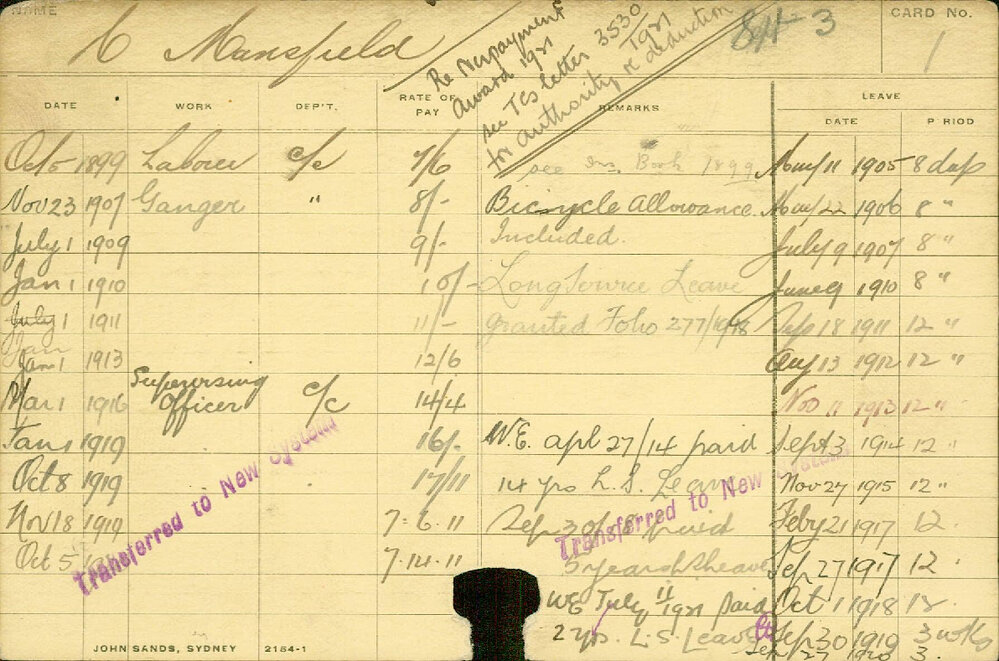 NAME
C Mansfield
Re Repayment
Award 1921
see TCs letter 3530
1921
for authority re deduction
3
CARD No.
1
DATE WORK DEP'T. RATE OF PAY REMARKS LEAVE
DATE PERIOD
Oct 5 1899 Labourer c/c 7/6 see Book 1899 May 11 1905 8 days
Nov 23 1907 Ganger " 8/- Bicycle Allowance May 22 1906 8 "
July 1 1909 9/- Included. July 9 1907 8 "
Jan 1 1910 10/- Long Service Leave June 9 1910 8 "
July 1 1911 11/- granted Folio 277/1918 Sep 18 1911 12 "
Jan
Jan 1 1913 12/6 Aug 13 1912 12 "
Mar 1 1916 Supervising Officer c/c 14/4 Nov 11 1913 12 "
Jan 1 1919 16/- W.E. apl 27/14 paid Sept 3 1914 12 "
Oct 8 1919 17/11 14 yrs L.S. Leave Nov 27 1915 12 "
Nov 18 1919 7-6-11 Sep 30 paid Feby 21 1917 12
Oct 5 7-14-11 5 years Leave Sep 27 1917 12
WE July 11 1921 paid Oct 1 1918 12
2 yrs. L.S. Leave Sep 30 1919 3 wks
Sep 27 1920 3
Transferred to New System
Transferred to New System
JOHN SANDS, SYDNEY 2184-1